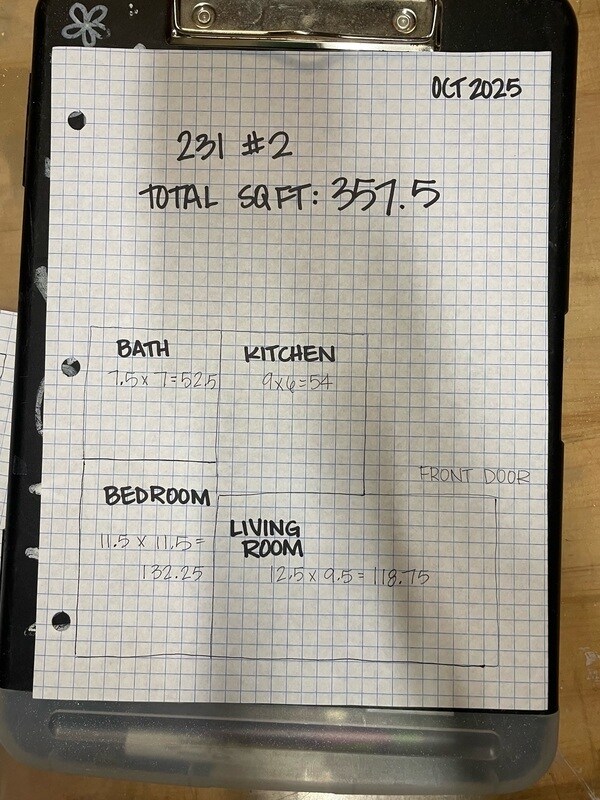 OCT 2025
231 #2
TOTAL SQFT: 357.5
BATH
7.5 x 7 = 52.5
KITCHEN
9x6 = 54
FRONT DOOR
BEDROOM
11.5 x 11.5 =
132.25
LIVING
ROOM
12.5 x 9.5 = 118.75